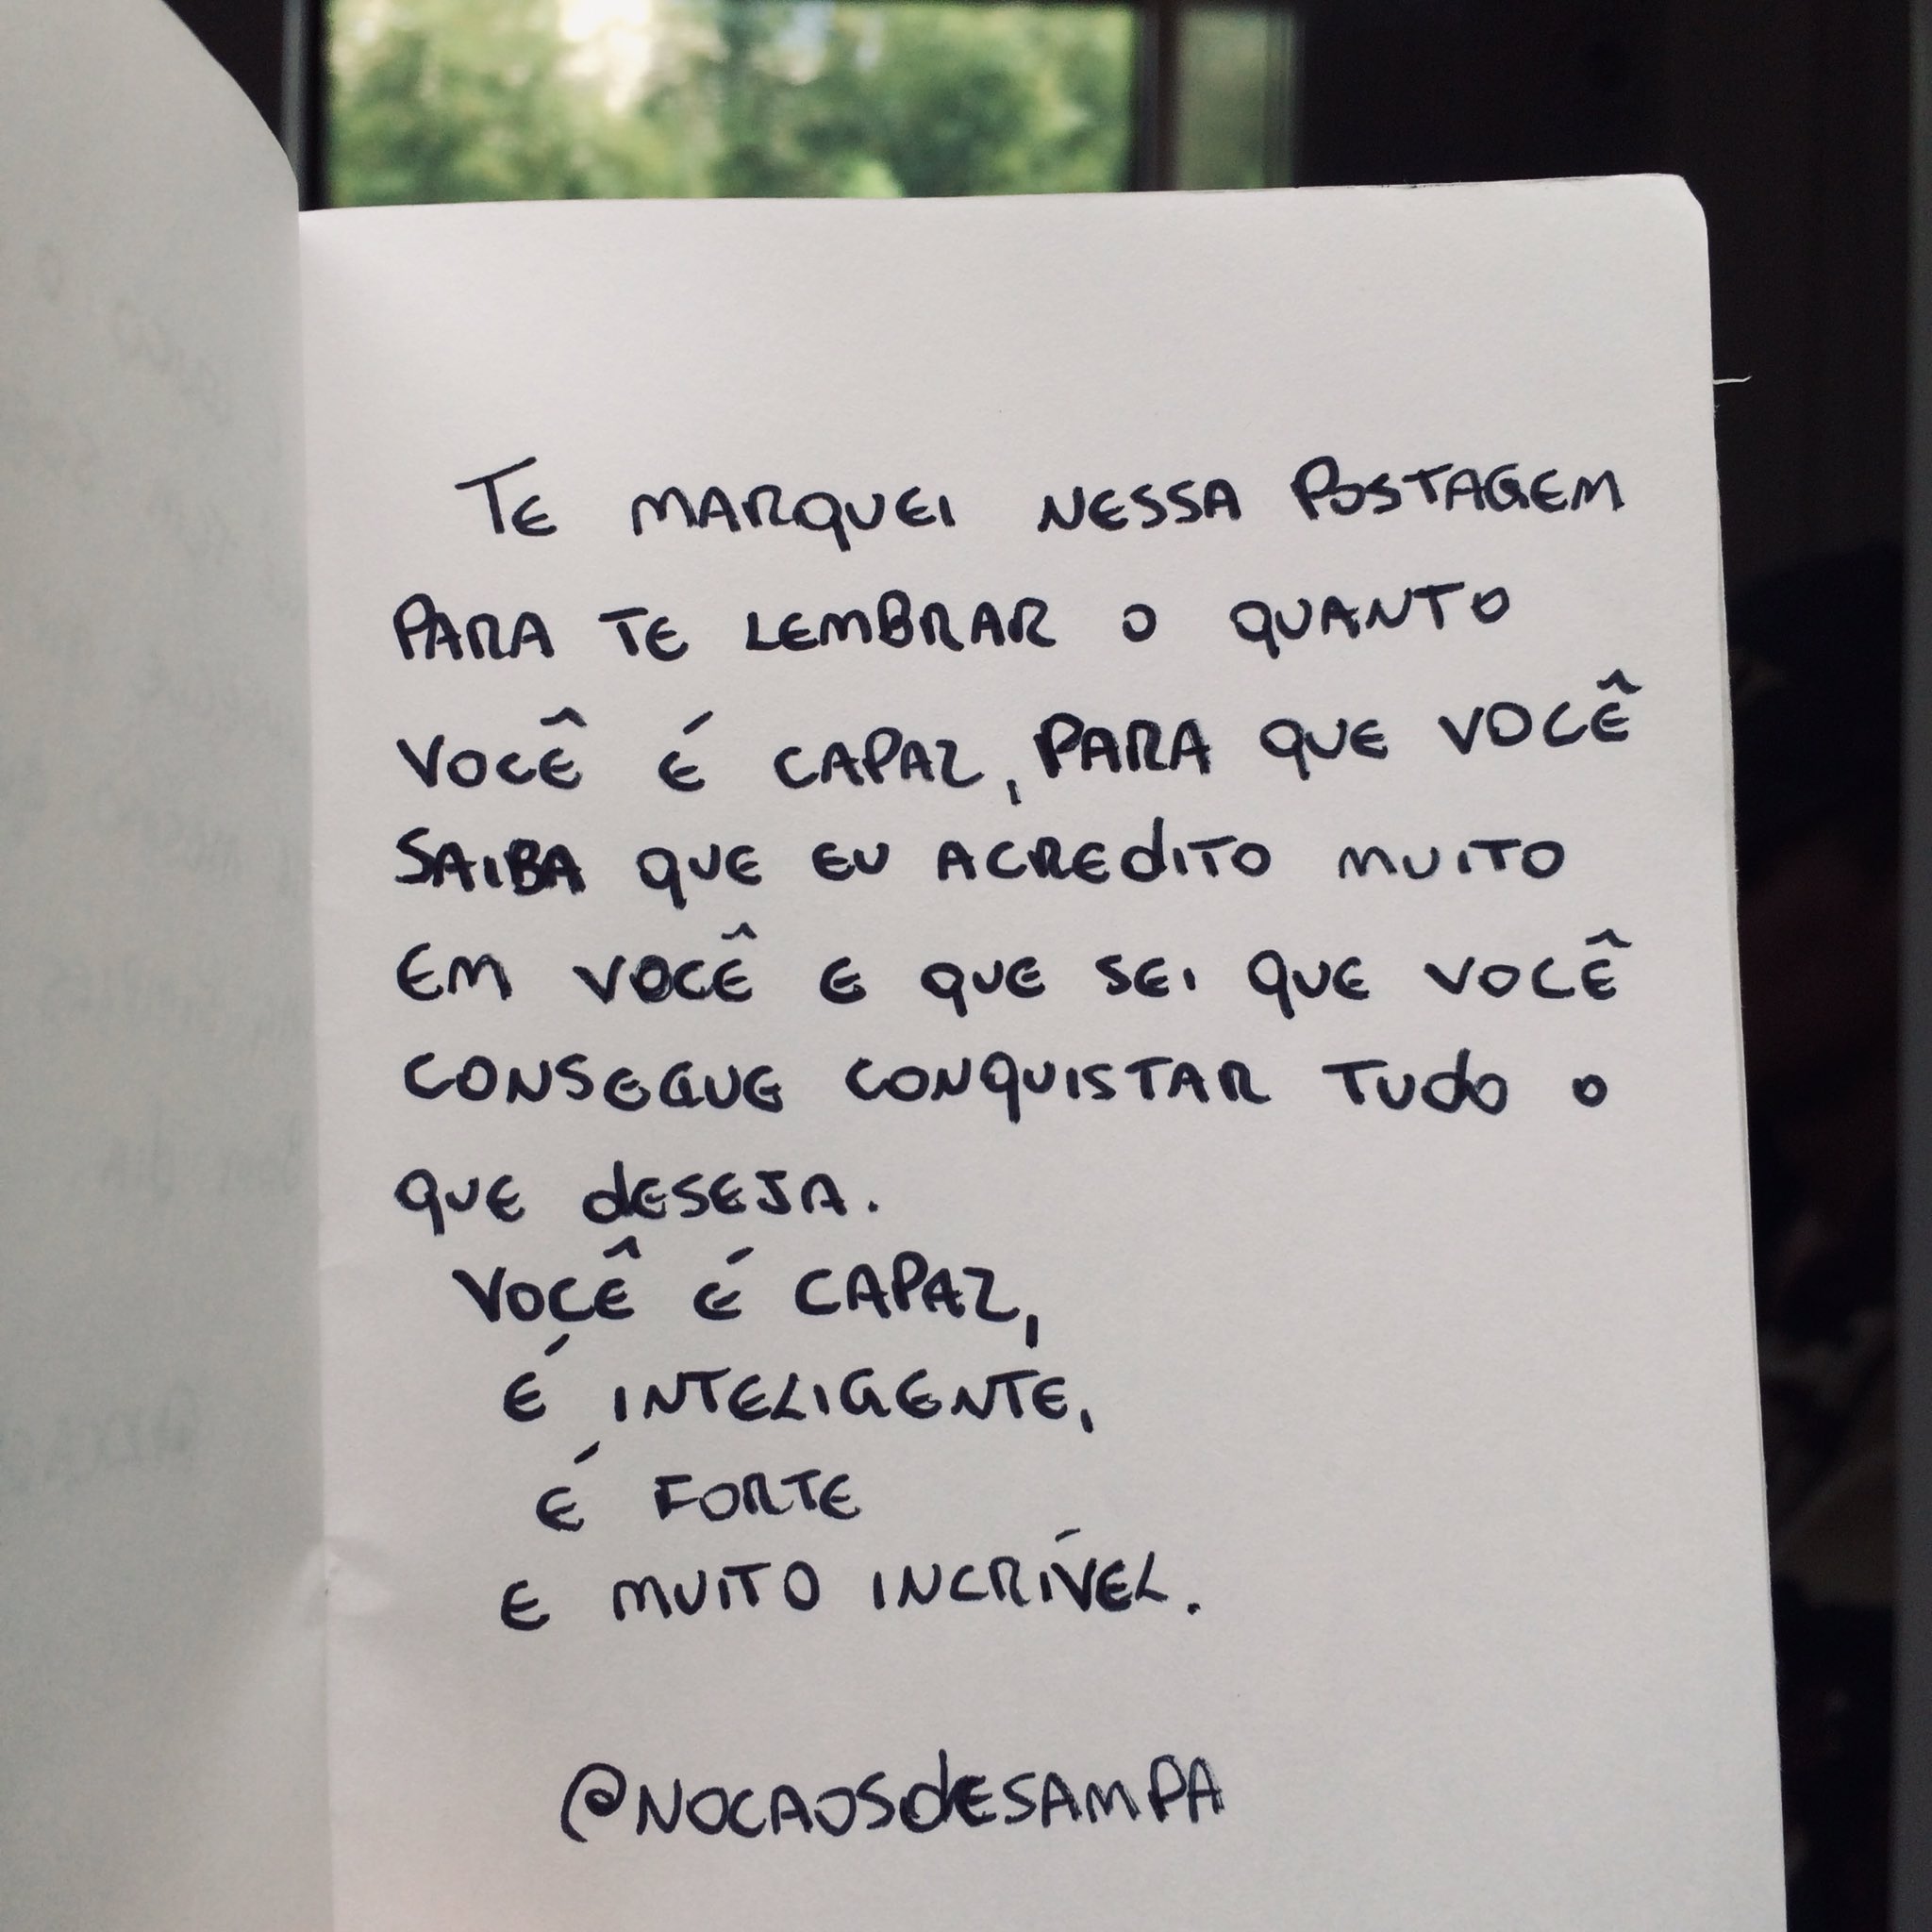 TE MARQUEI NESSA POSTAGEM
PARA TE LEMBRAR O QUANTO
VOCÊ É CAPAZ, PARA QUE VOCÊ
SAIBA QUE EU ACREDITO MUITO
EM VOCÊ E QUE SEI QUE VOCÊ
CONSEGUE CONQUISTAR TUDO O
QUE DESEJA.
VOCÊ É CAPAZ,
É INTELIGENTE,
É FORTE
E MUITO INCRÍVEL.
@NOCAOSDESAMPA